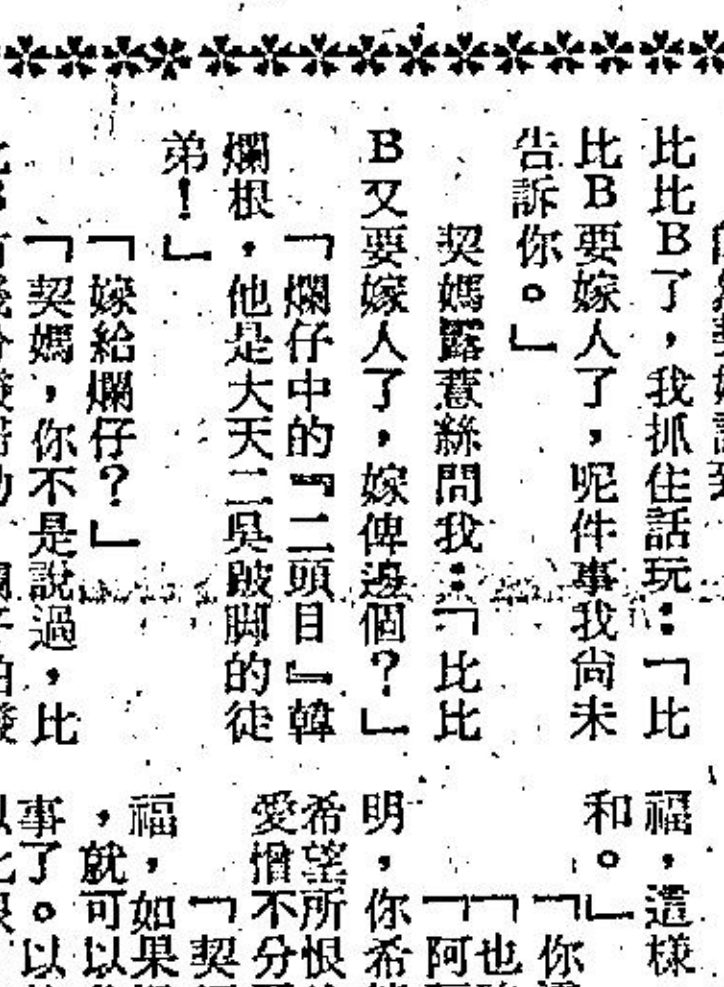 比比B了，我抓住話玩：「比
比B要嫁人了，呢件事我尚未
告訴你。」
契媽露薏絲問我：「比比
B又要嫁人了，嫁俾邊個？」
「爛仔中的『二頭目』韓
爛根，他是大天二吳跛脚的徒
弟！」
「嫁給爛仔？」
「契媽，你不是說過，比
福，這樣
和。」
「你
「也
「阿
明，你希
希望所恨
愛憎不分
「契
福，如果
，就可以
事了。以